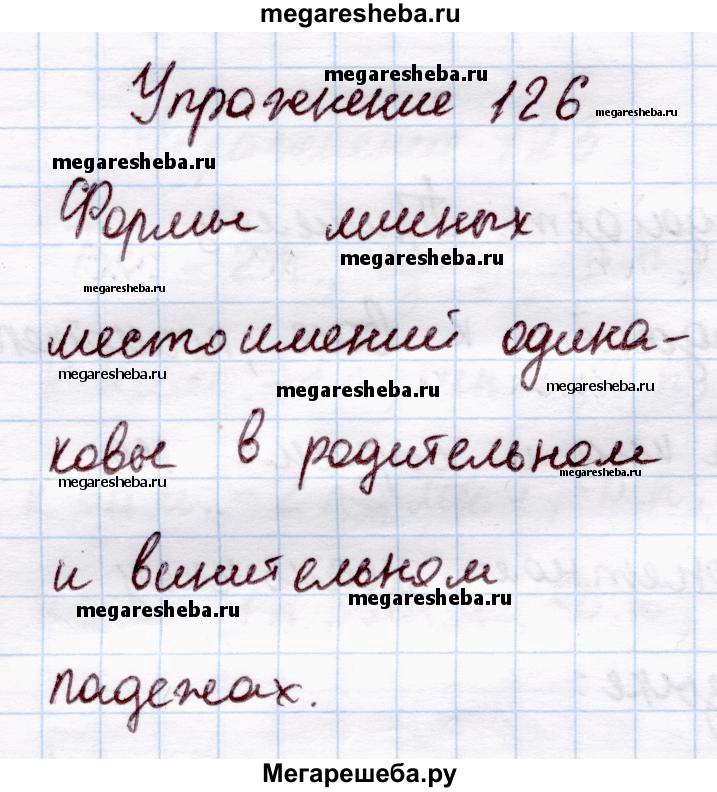 megaresheba.ru
Упражнение 126
megaresheba.ru
megaresheba.ru
megaresheba.ru
Формы личных
megaresheba.ru
megaresheba.ru
местоимений одина-
megaresheba.ru
megaresheba.ru
megaresheba.ru
ковы в родительном
megaresheba.ru
megaresheba.ru
и винительном
megaresheba.ru
megaresheba.ru
падежах.
Мегарешеба.ру